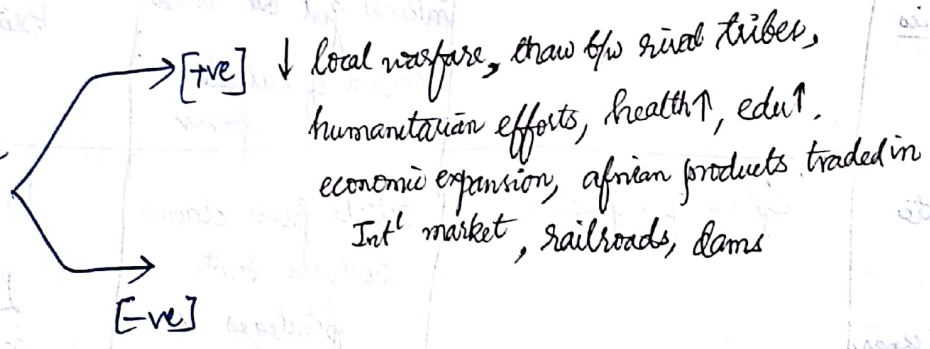 [+ve] ↓ local warfare, thaw b/w rival tribes,
humanitarian efforts, health↑, edu↑.
economic expansion, african products traded in
Int'l market, railroads, dams
[-ve]